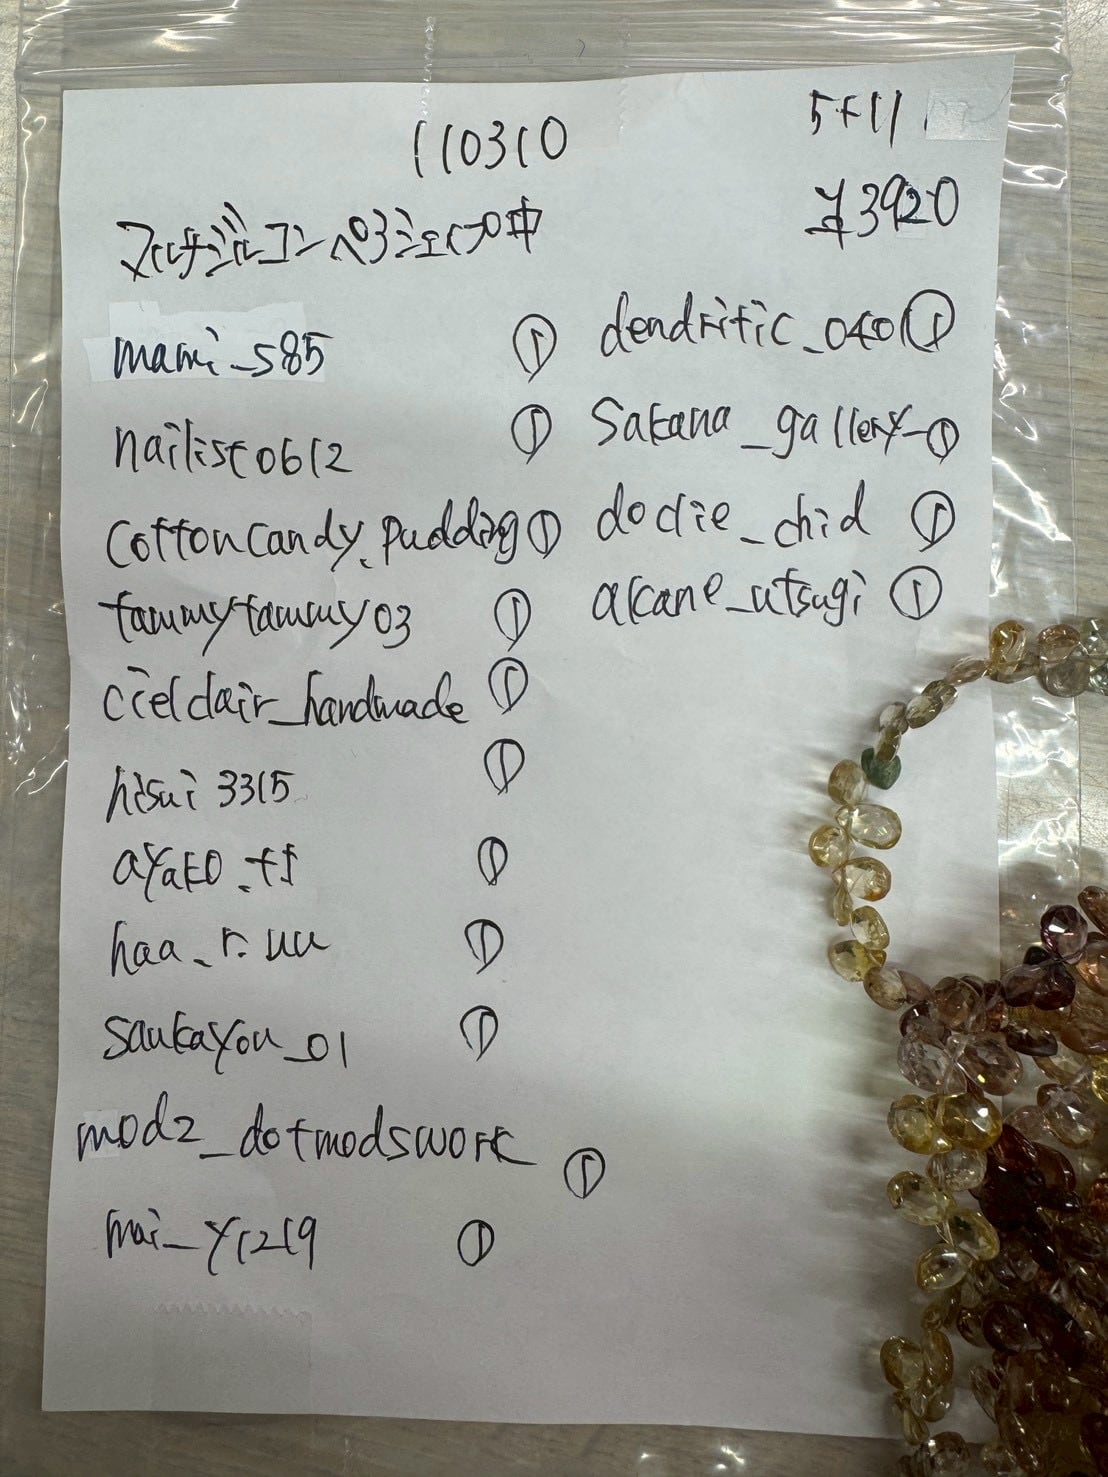 110310
5+11
¥3920
マルチジルコンペアシェイプ中
mami_s85 ①
nailist0612 ①
cottoncandy.pudding ①
tammytammy03 ①
cielclair_handmade ①
hisui3315 ①
ayako.tf ①
haa_r.uu ①
saukayou_01 ①
mod2_dotmodswork ①
mai_y1219 ①
dendritic_0401 ①
sakana_gallery_ ①
doclie_chid ①
akane_utsugi ①